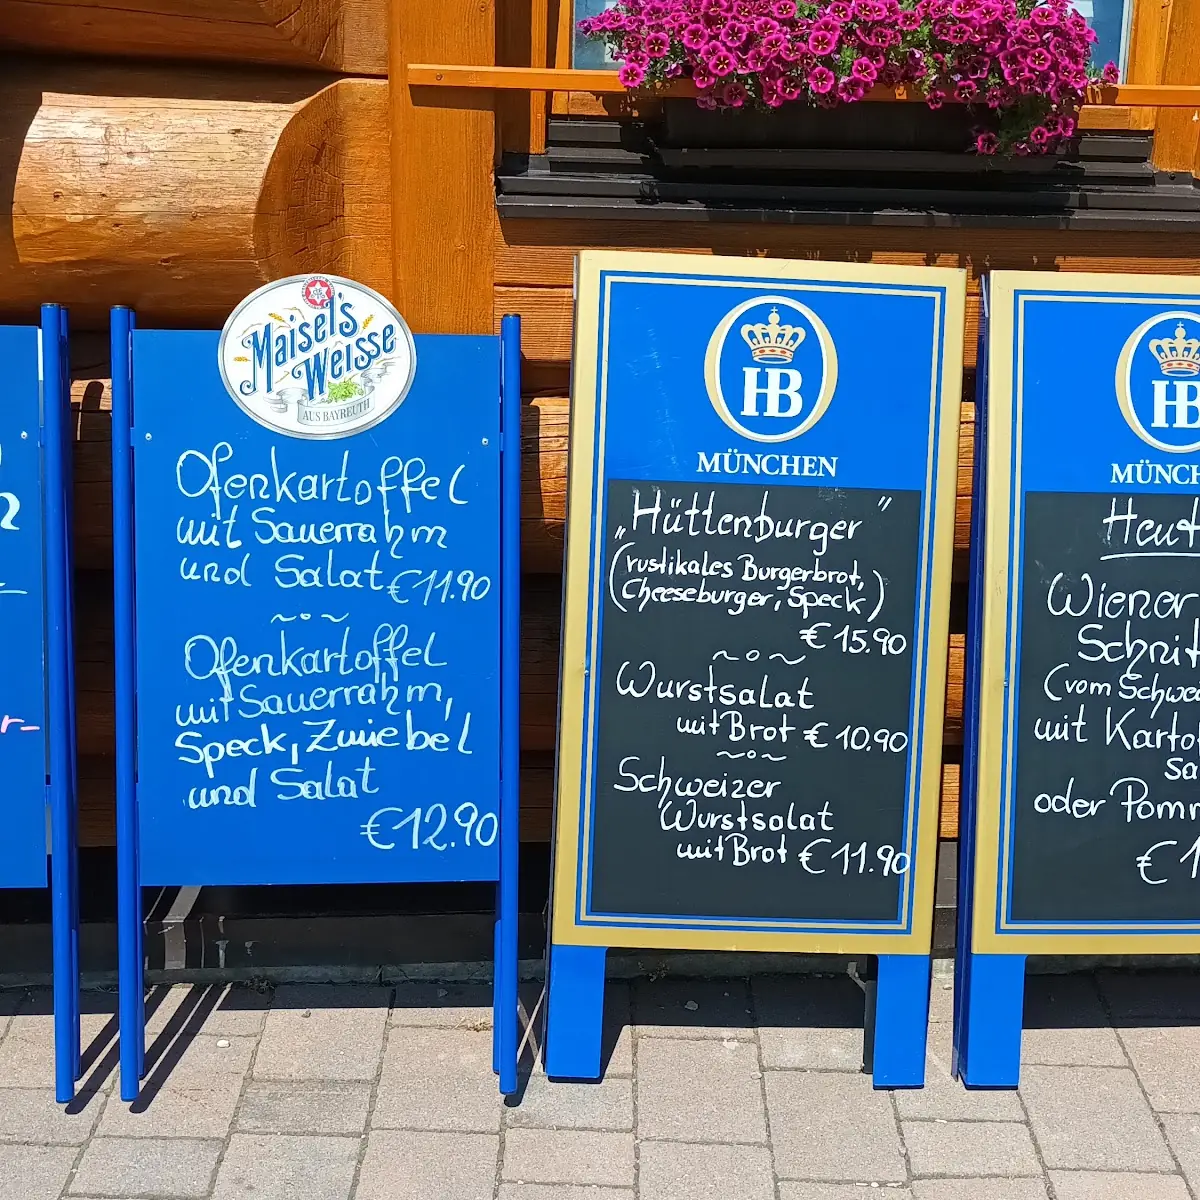 Maisel's
Weisse
AUS BAYREUTH
Ofenkartoffel
mit Sauerrahm
und Salat €11.90
~o~
Ofenkartoffel
mit Sauerrahm,
Speck, Zwiebel
und Salat
€12.90
HB
MÜNCHEN
„Hüttenburger"
(rustikales Burgerbrot,
Cheeseburger, Speck)
€15.90
~o~
Wurstsalat
mit Brot €10.90
~o~
Schweizer
Wurstsalat
mit Brot €11.90
HB
MÜNCH
Heut
Wiener
Schnit
(vom Schwe
mit Karto
Sa
oder Pomm
€1